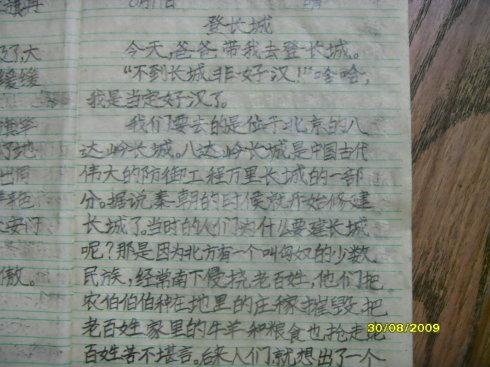 8月11日 晴
登长城
今天,爸爸带我去登长城。
“不到长城非好汉!”哈哈,
我是当定好汉了。
我们要去的是位于北京的八
达岭长城。八达岭长城是中国古代
伟大的防御工程万里长城的一部
分。据说秦朝的时候就开始修建
长城了。当时的人们为什么要建长城
呢?那是因为北方有一个叫匈奴的少数
民族,经常南下侵扰老百姓,他们把
农伯伯伯种在地里的庄稼摧毁,把
老百姓家里的牛羊和粮食也抢走,
百姓苦不堪言。后来人们就想出了一个
30/08/2009